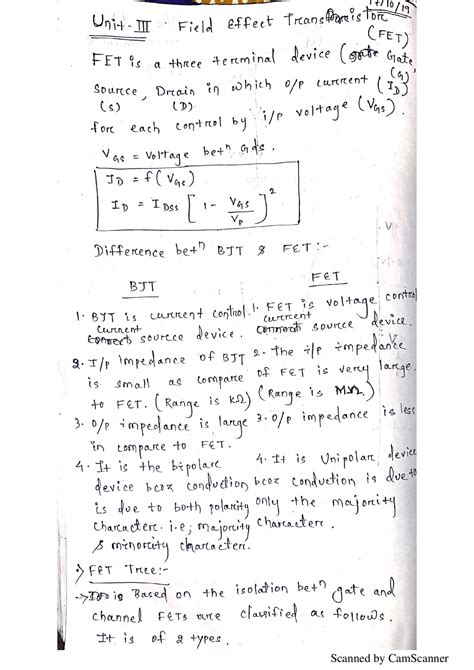 17/10/19
Unit-III Field Effect Transistor
(FET)
FET is a three terminal device (Gate
(G)
source, Drain in which o/p current (ID)
(S) (D)
for each control by i/p voltage (VGS).
VGS = Voltage betn G & S.
ID = f(VGS)
ID = IDSS [1 - VGS/VP]^2
Difference betn BJT & FET :-
BJT
1. BJT is current control
current source device.
2. I/p impedance of BJT
is small as compare
to FET. (Range is kΩ)
3. o/p impedance is large
in compare to FET.
4. It is the bipolar
device bcoz conduction
is due to both polarity
character. i.e; majority
& minority character.
FET
1. FET is voltage control
current source device.
2. The i/p impedance
of FET is very large.
(Range is MΩ)
3. o/p impedance is less
4. It is Unipolar device
bcoz conduction is due to
only the majority
character.
FET Tree:-
→ Based on the isolation betn gate and
channel FETs are classified as follows.
It is of 2 types.
Scanned by CamScanner